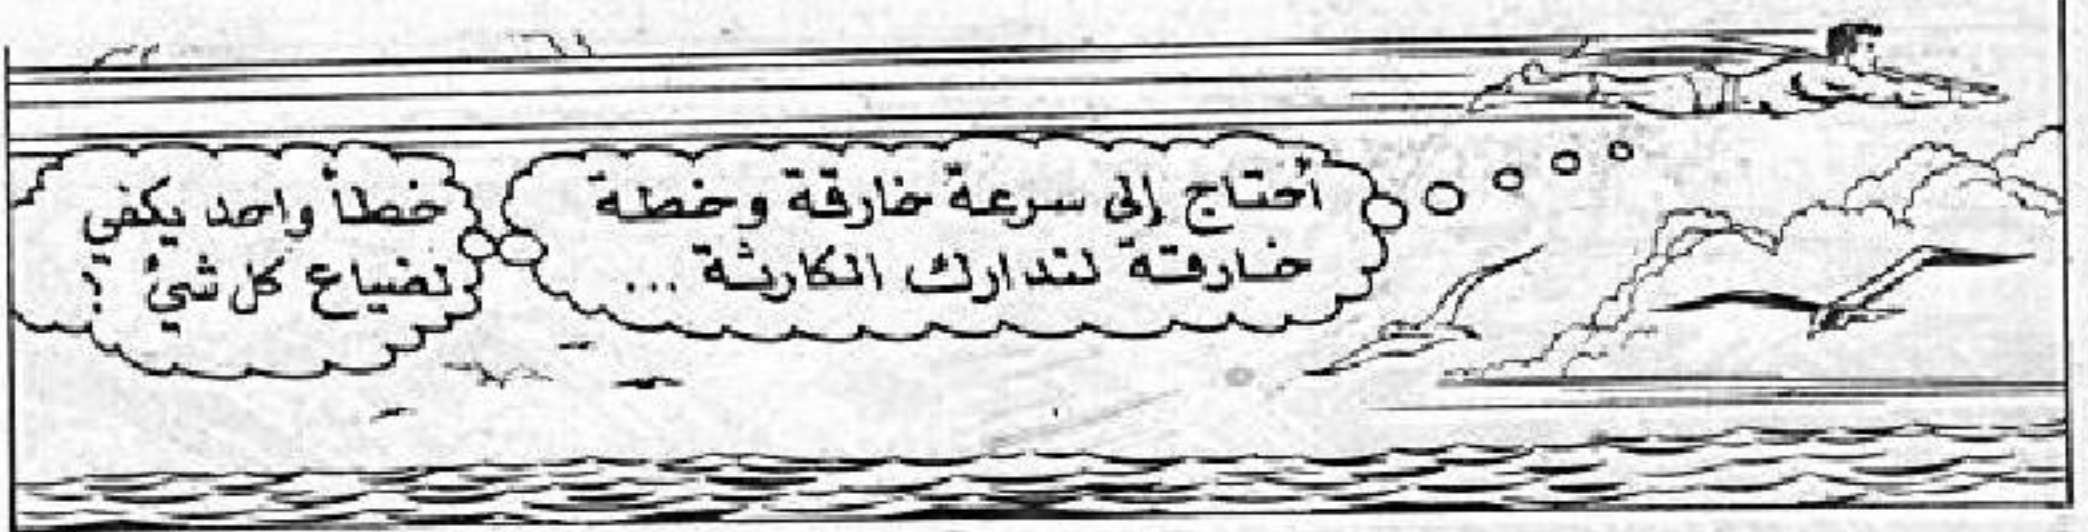 أحتاج إلى سرعة خارقة وخطة
خارقة لتدارك الكارثة ...
خطأ واحد يكفي
لضياع كل شيئ !